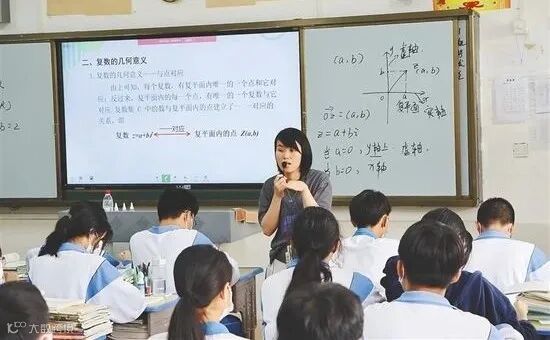 二、复数的几何意义
1. 复数的几何意义——与点对应
由上可知，每个复数，有复平面内唯一的一个点和它对
应；反过来，复平面内的每一个点，有唯一的一个复数与它
对应. 复数集 C 中的数与复平面内的点建立了一一对应的
关系，即
复数 z=a+bi 一一对应 复平面内的点 Z(a,b)
(a,b)
虚轴
b
(a,b)
a
复平面 实轴
oz=(a,b)
z=a+bi
当 a=0, y轴上 虚轴
当 b=0,
b=z
大数跨境